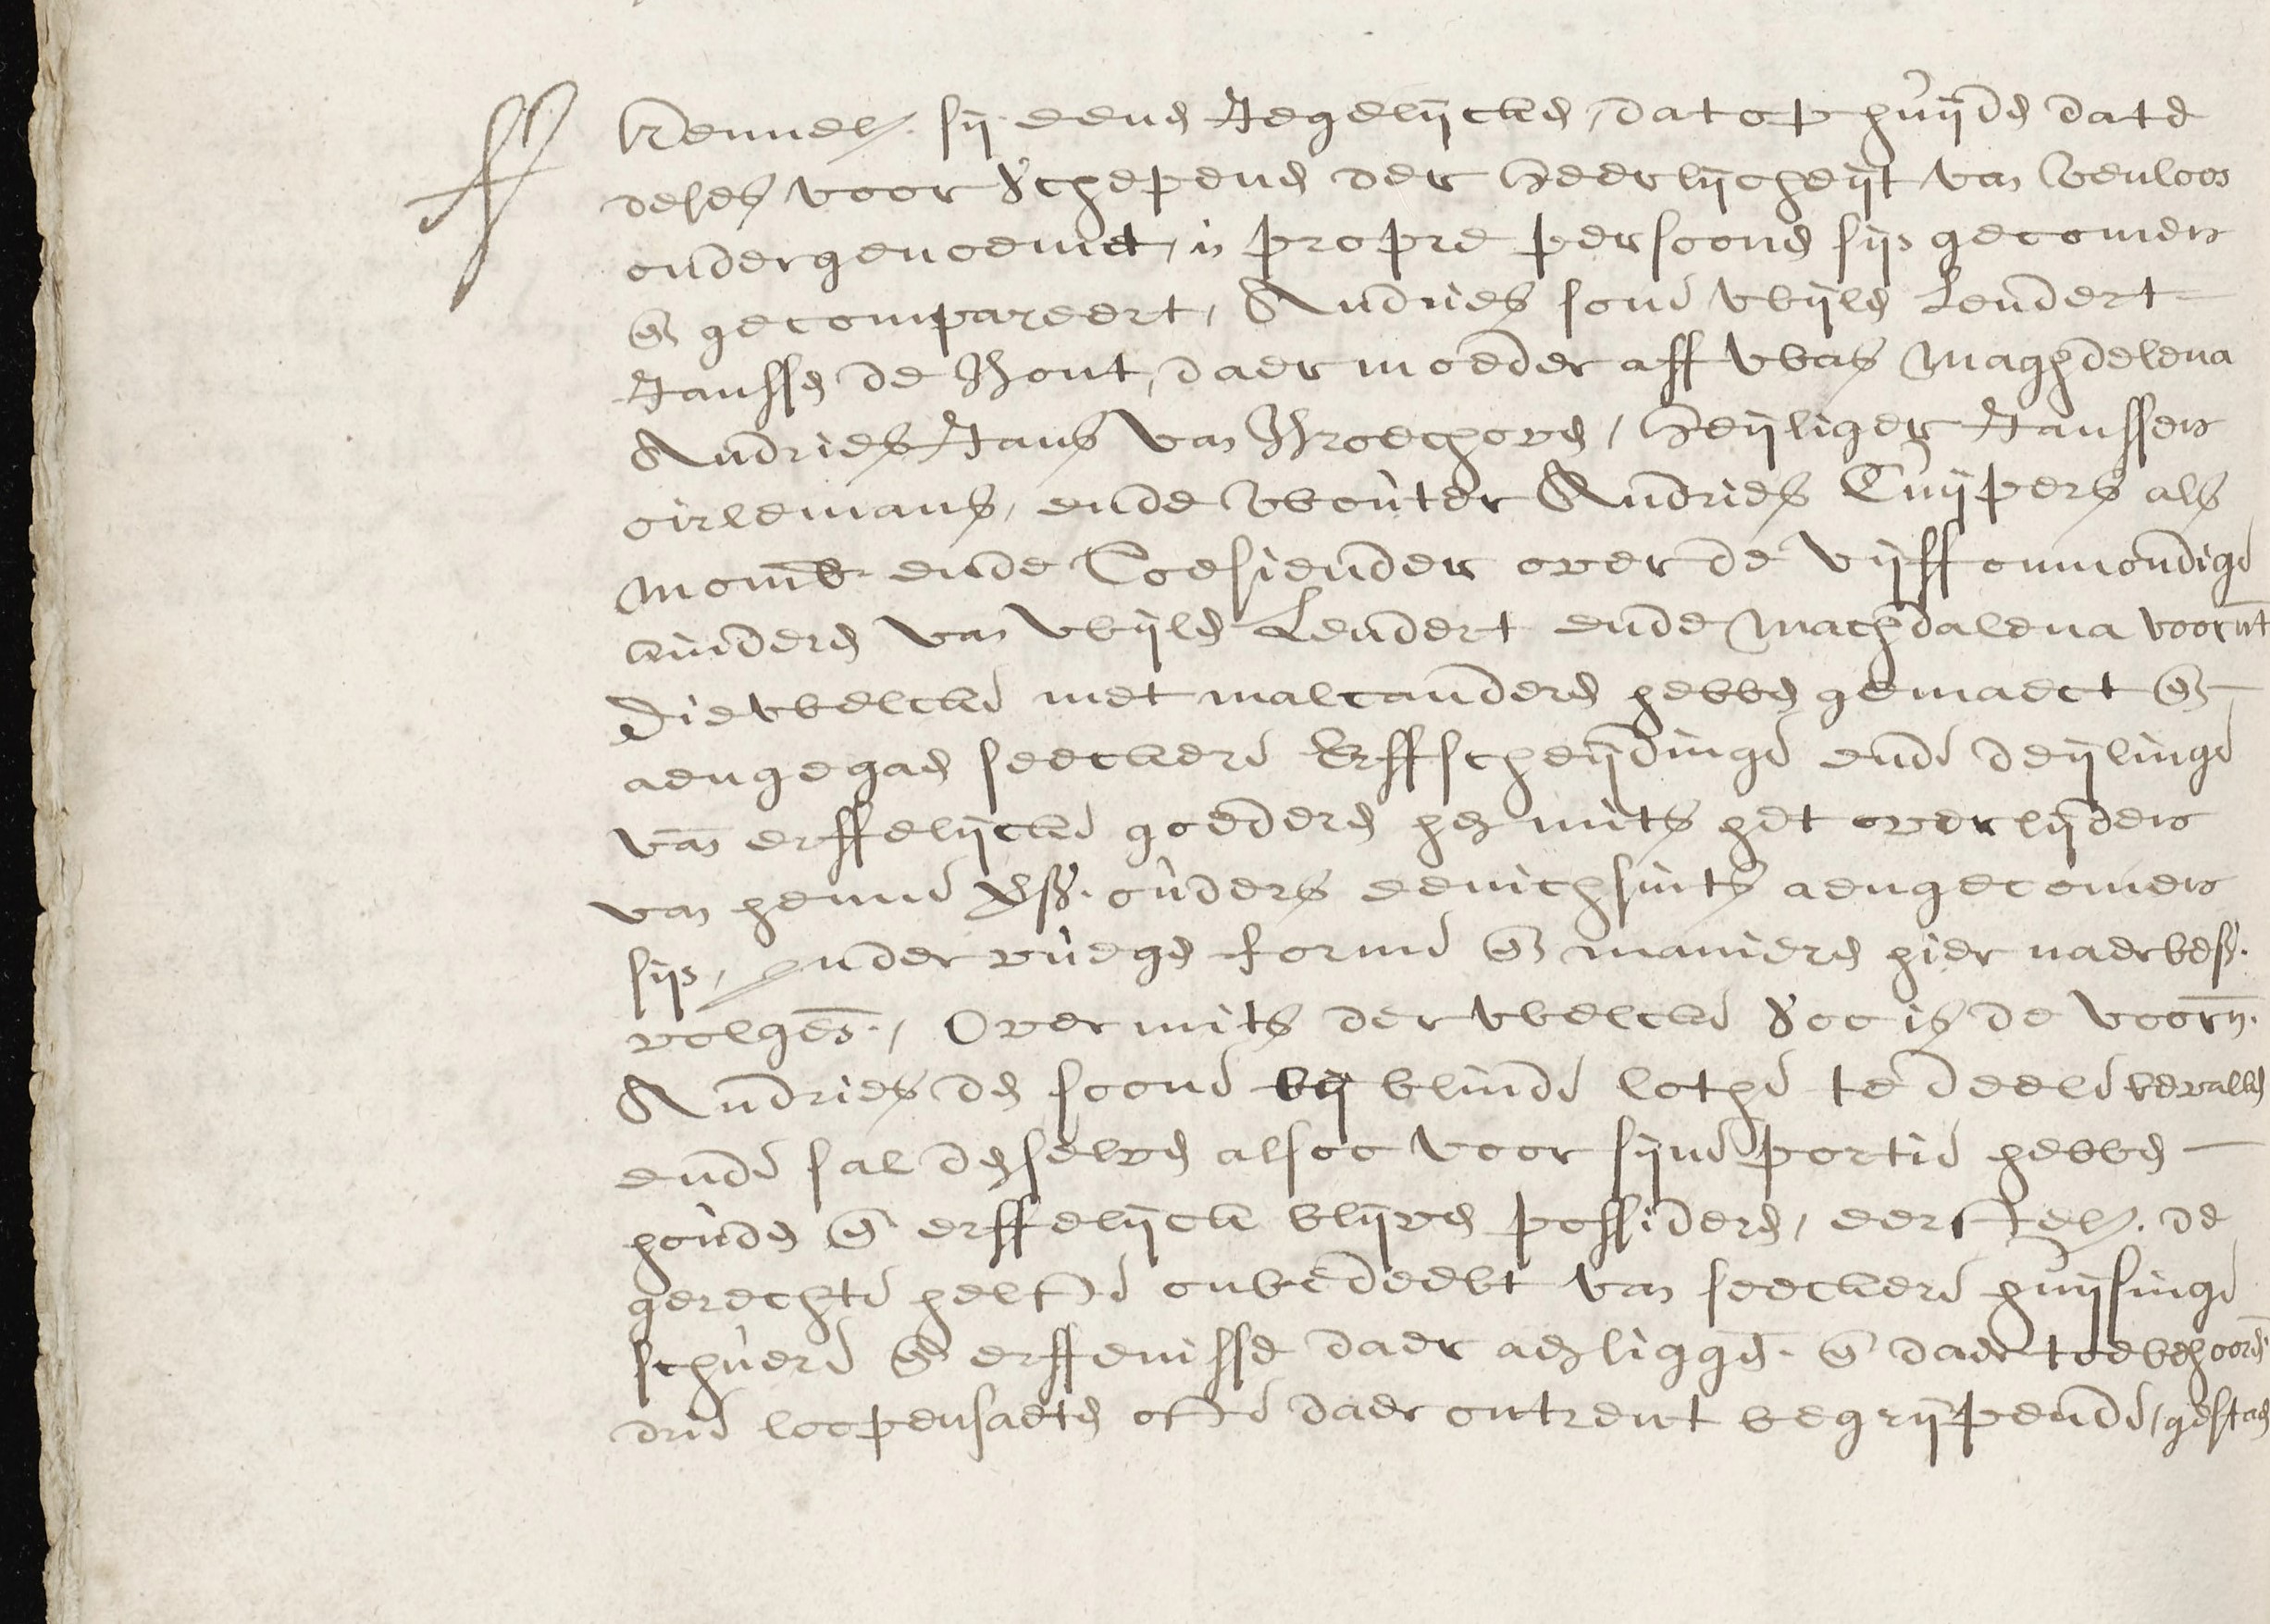 Kennel. sij eenen Jegelijcken, dat op huijden date
deses voor Schepenen der Heerlijcheijt van Venloon
ondergenoemt, in propre persoonen sijn gecomen
en gecompareert, Andries sone wijlen Lendert
Janssen de Hont, daer moeder aff was Maghdelena
Andries Jans van Broechoven, Heijliger Janssen
oirlemans, ende Wouter Andries Cuijpers als
momb. ende Toesiender over de vijff onmondige
kinderen van wijlen Lendert ende Machdalena voornt
Diewelcke met malcanderen hebben gemaect en
aengegaen seeckere Erffscheijdinge ende deijlinge
van erffelijcke goederen hen mits het overlijden
van henne vss. ouders eenichsints aengecomen
sijn, Inder vuegen forme en manieren hier naerbes.
volgen., Overmits der welcke Soo is de voorn.
Andries den soone bij blinde lothe te deele bevallen
ende sal den selven alsoo voor sijne portie hebben
houden en erffelijck blijven possideren, eerstel. de
gerechte helfte onbedeelt van seeckere huijsinge
schuere en erffenisse daer aen liggen. en daer toebehooren.
drie loopensaeten ofte daer ontrent begrijpende, gestaen